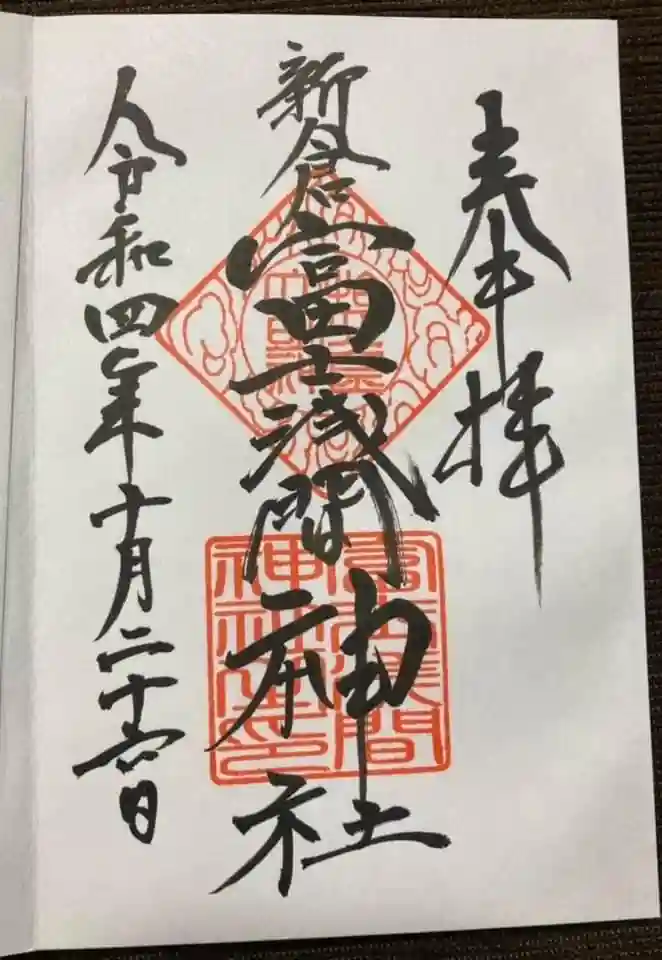 奉拝
新倉富士浅間神社
令和四年十月二十六日
富士浅間
神社之印